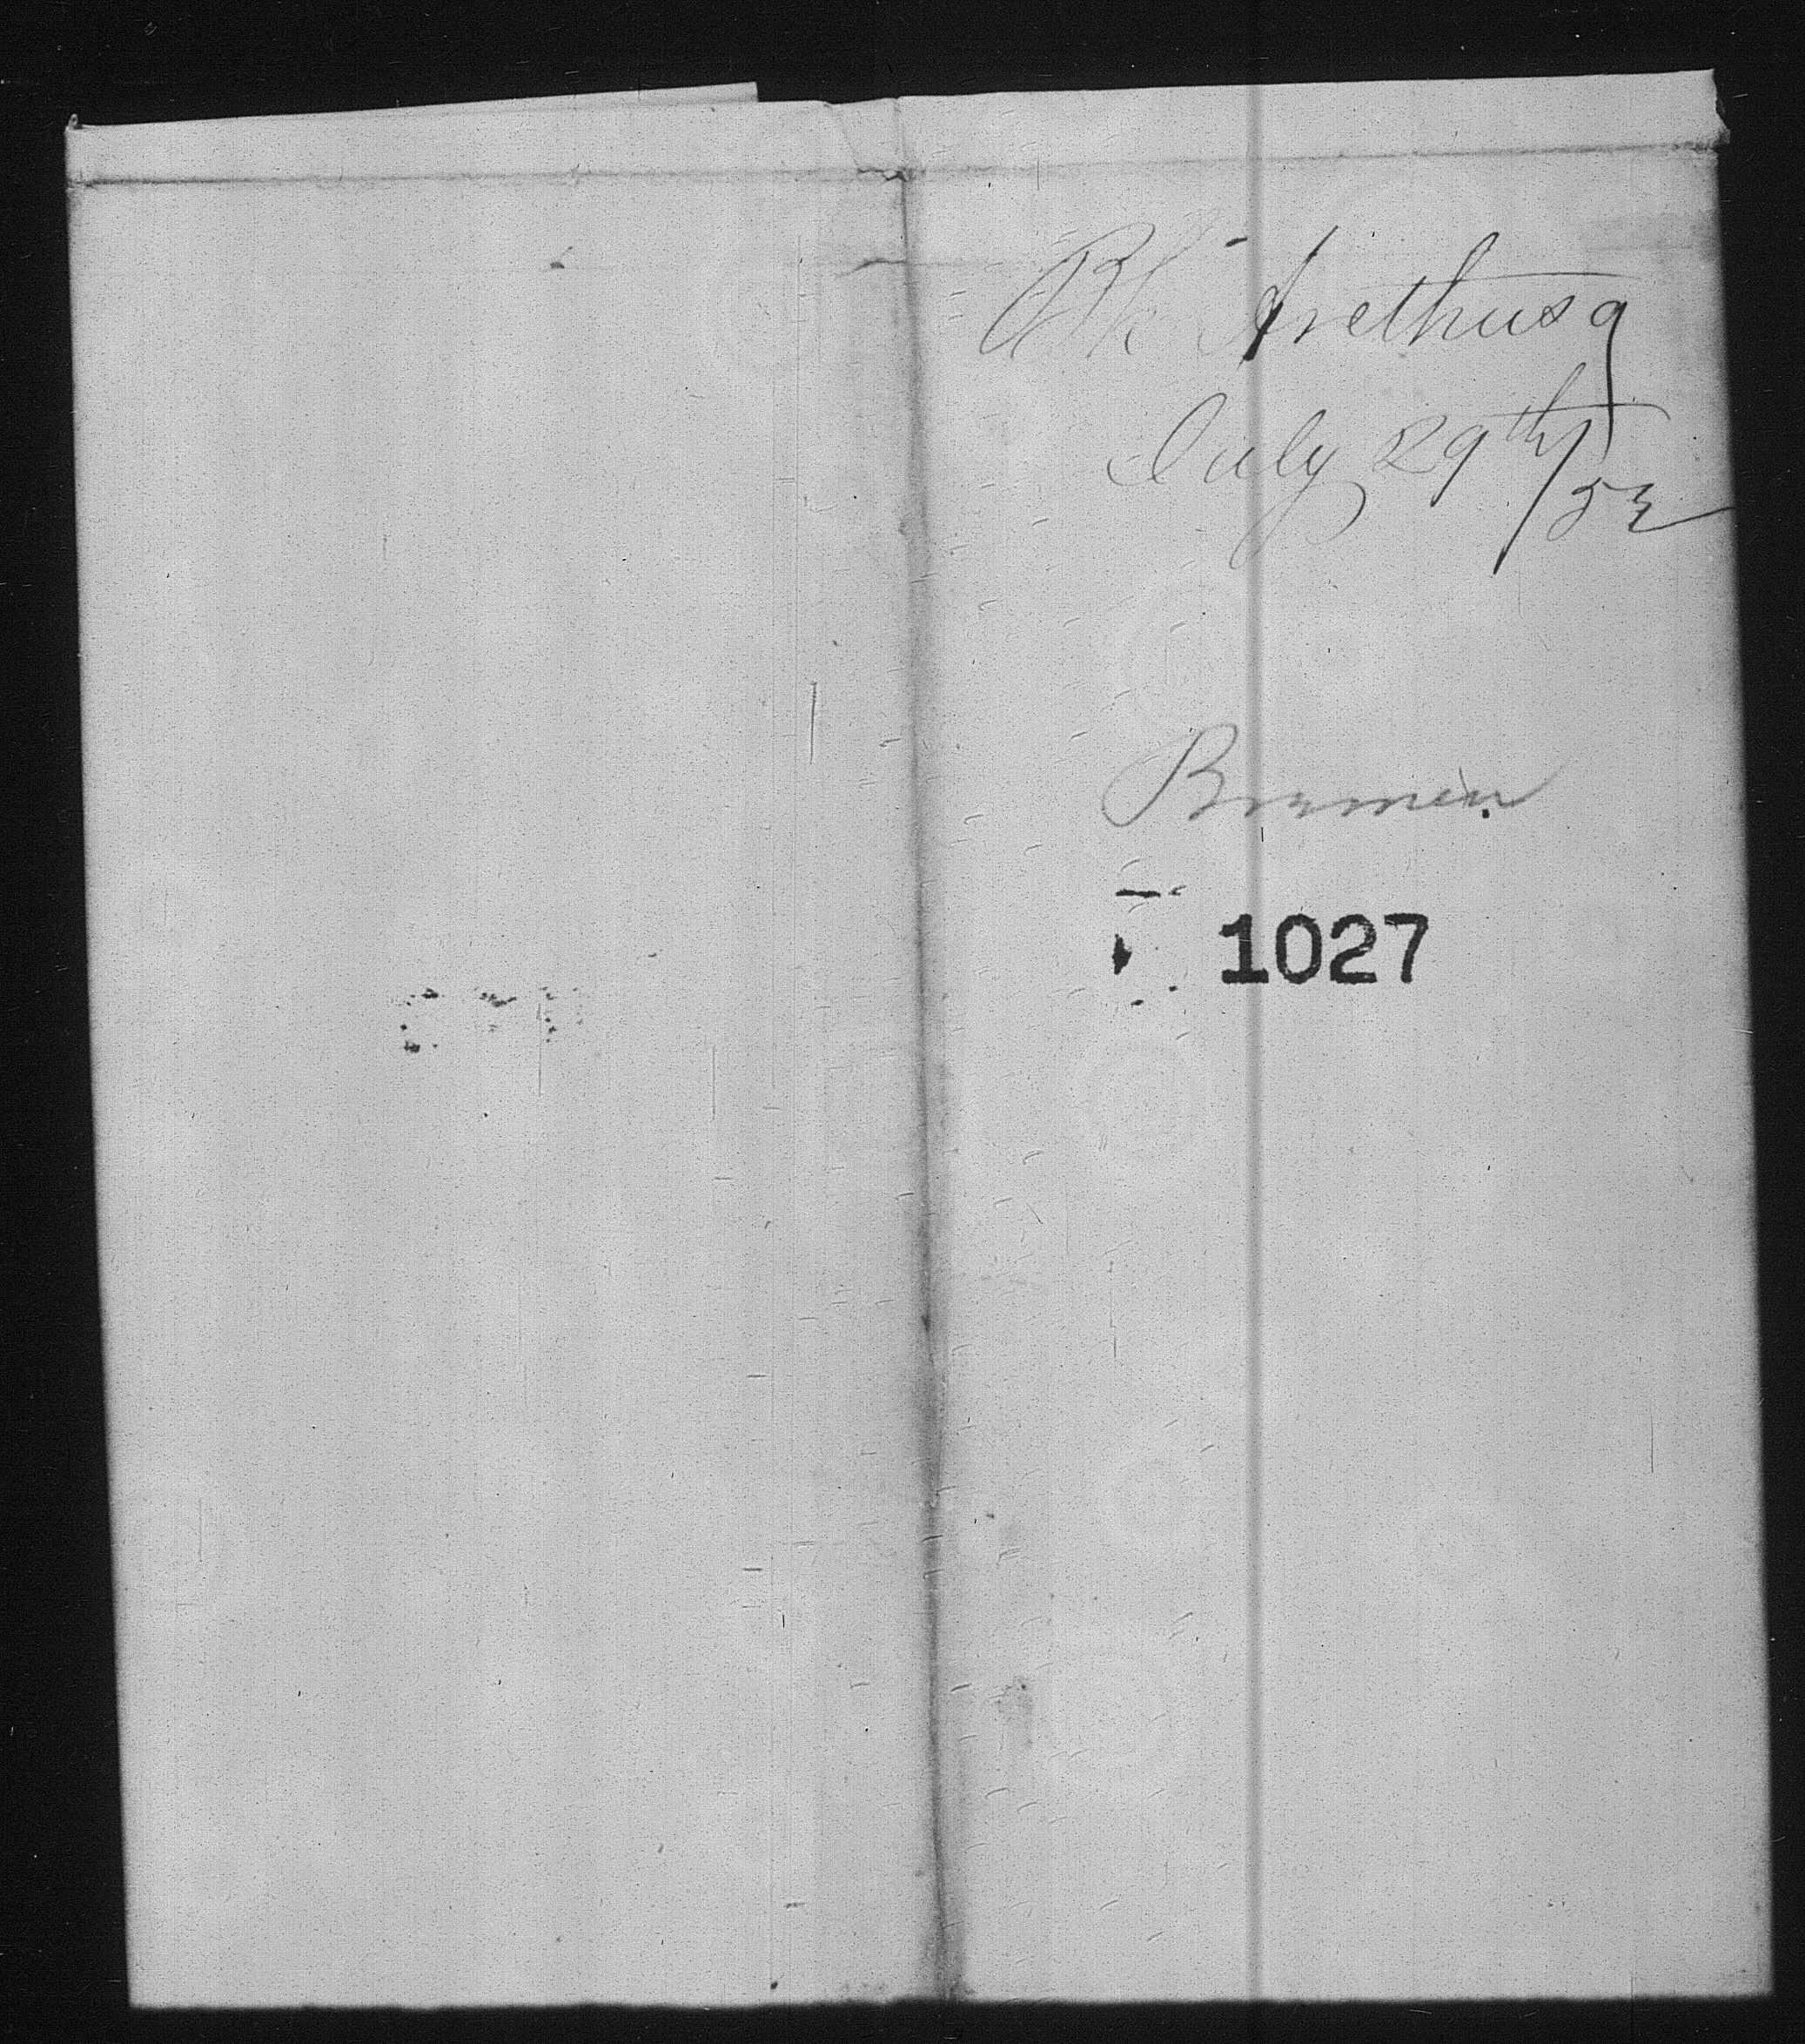 Bk Arethusa
July 29th/52
Bremen
1027